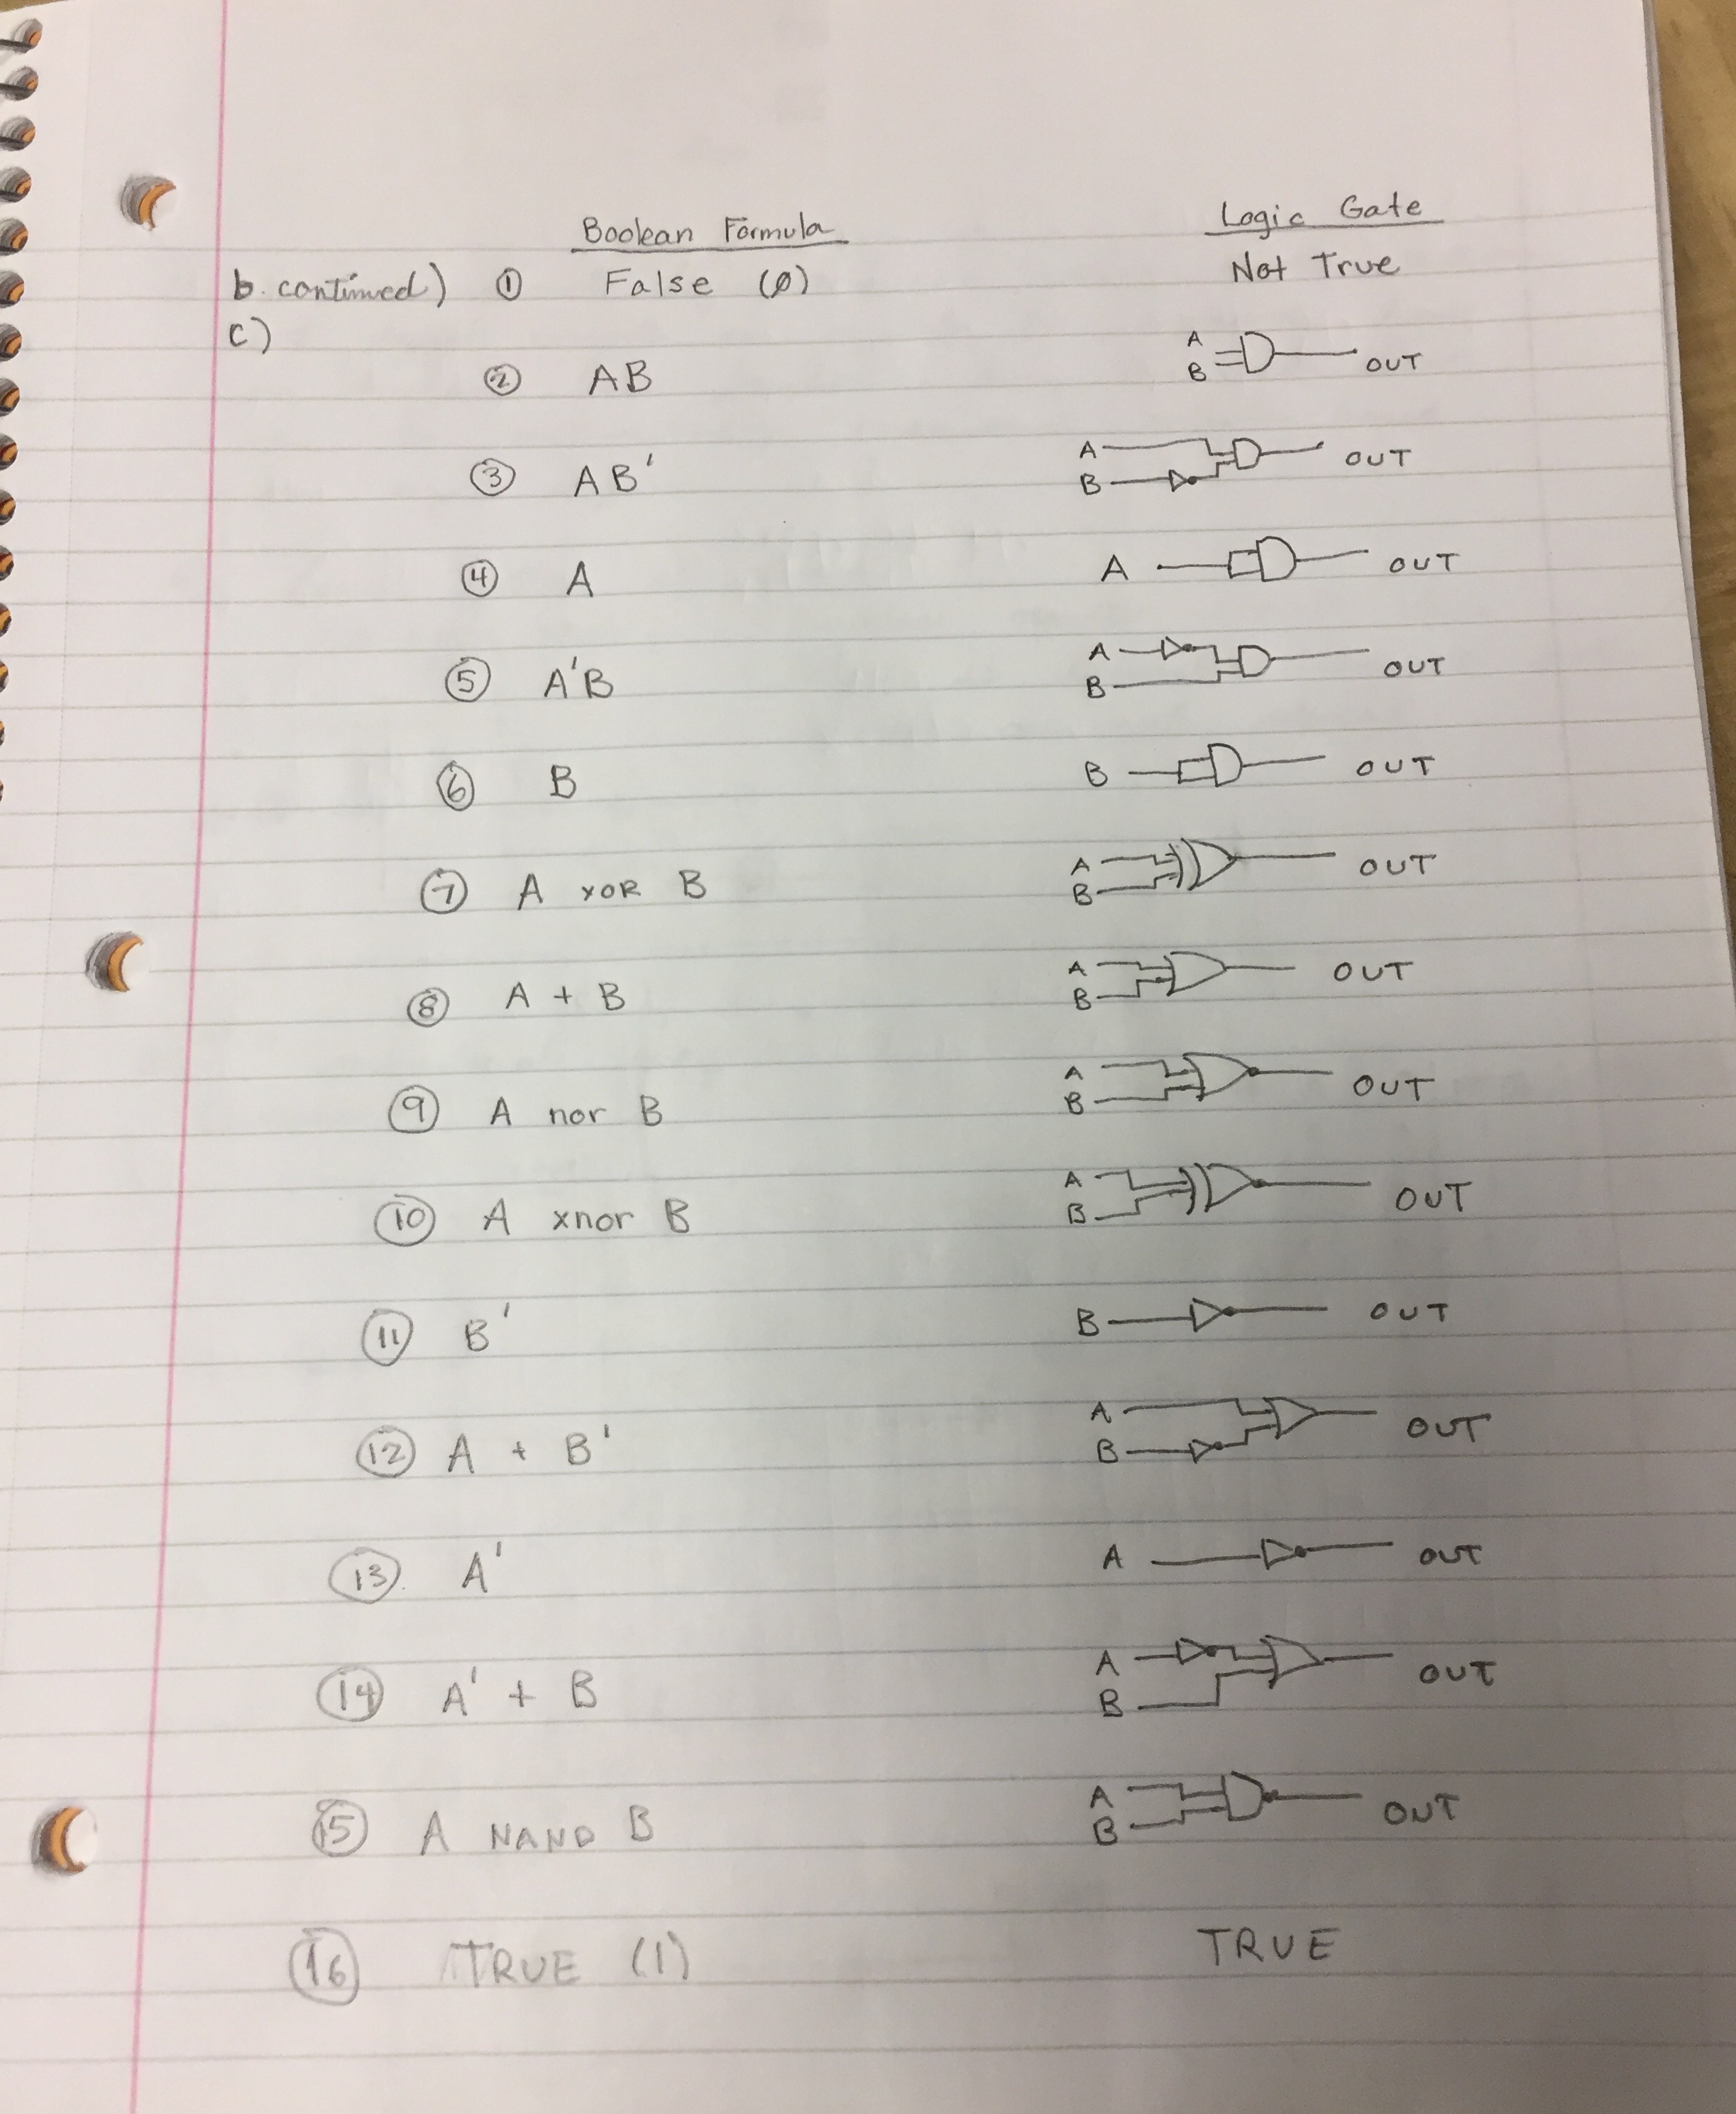 Boolean Formula Logic Gate
b. continued) ① False (0) Not True
c)
② AB A B OUT
③ AB' A B OUT
④ A A OUT
⑤ A'B A B OUT
⑥ B B OUT
⑦ A XOR B A B OUT
⑧ A + B A B OUT
⑨ A nor B A B OUT
⑩ A xnor B A B OUT
⑪ B' B OUT
⑫ A + B' A B OUT
⑬ A' A OUT
⑭ A' + B A B OUT
⑮ A NAND B A B OUT
⑯ TRUE (1) TRUE